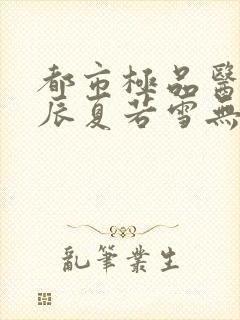 都市極品醫
辰夏若雪無
亂筆叢生